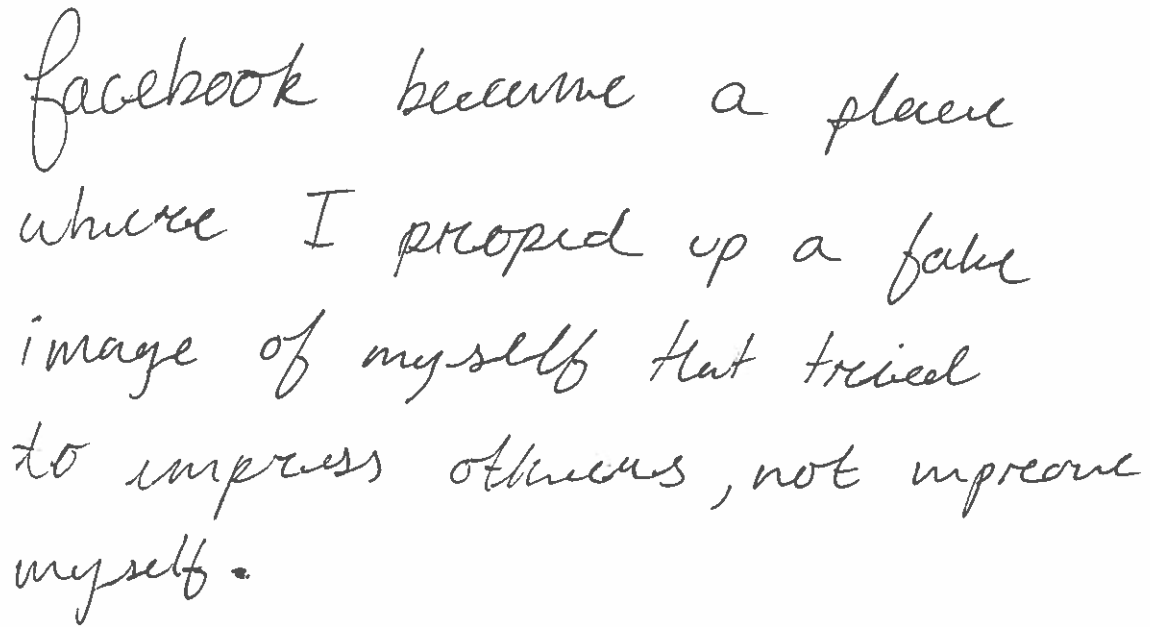 facebook became a place
where I proped up a fake
image of myself that tried
to impress others, not improve
myself.